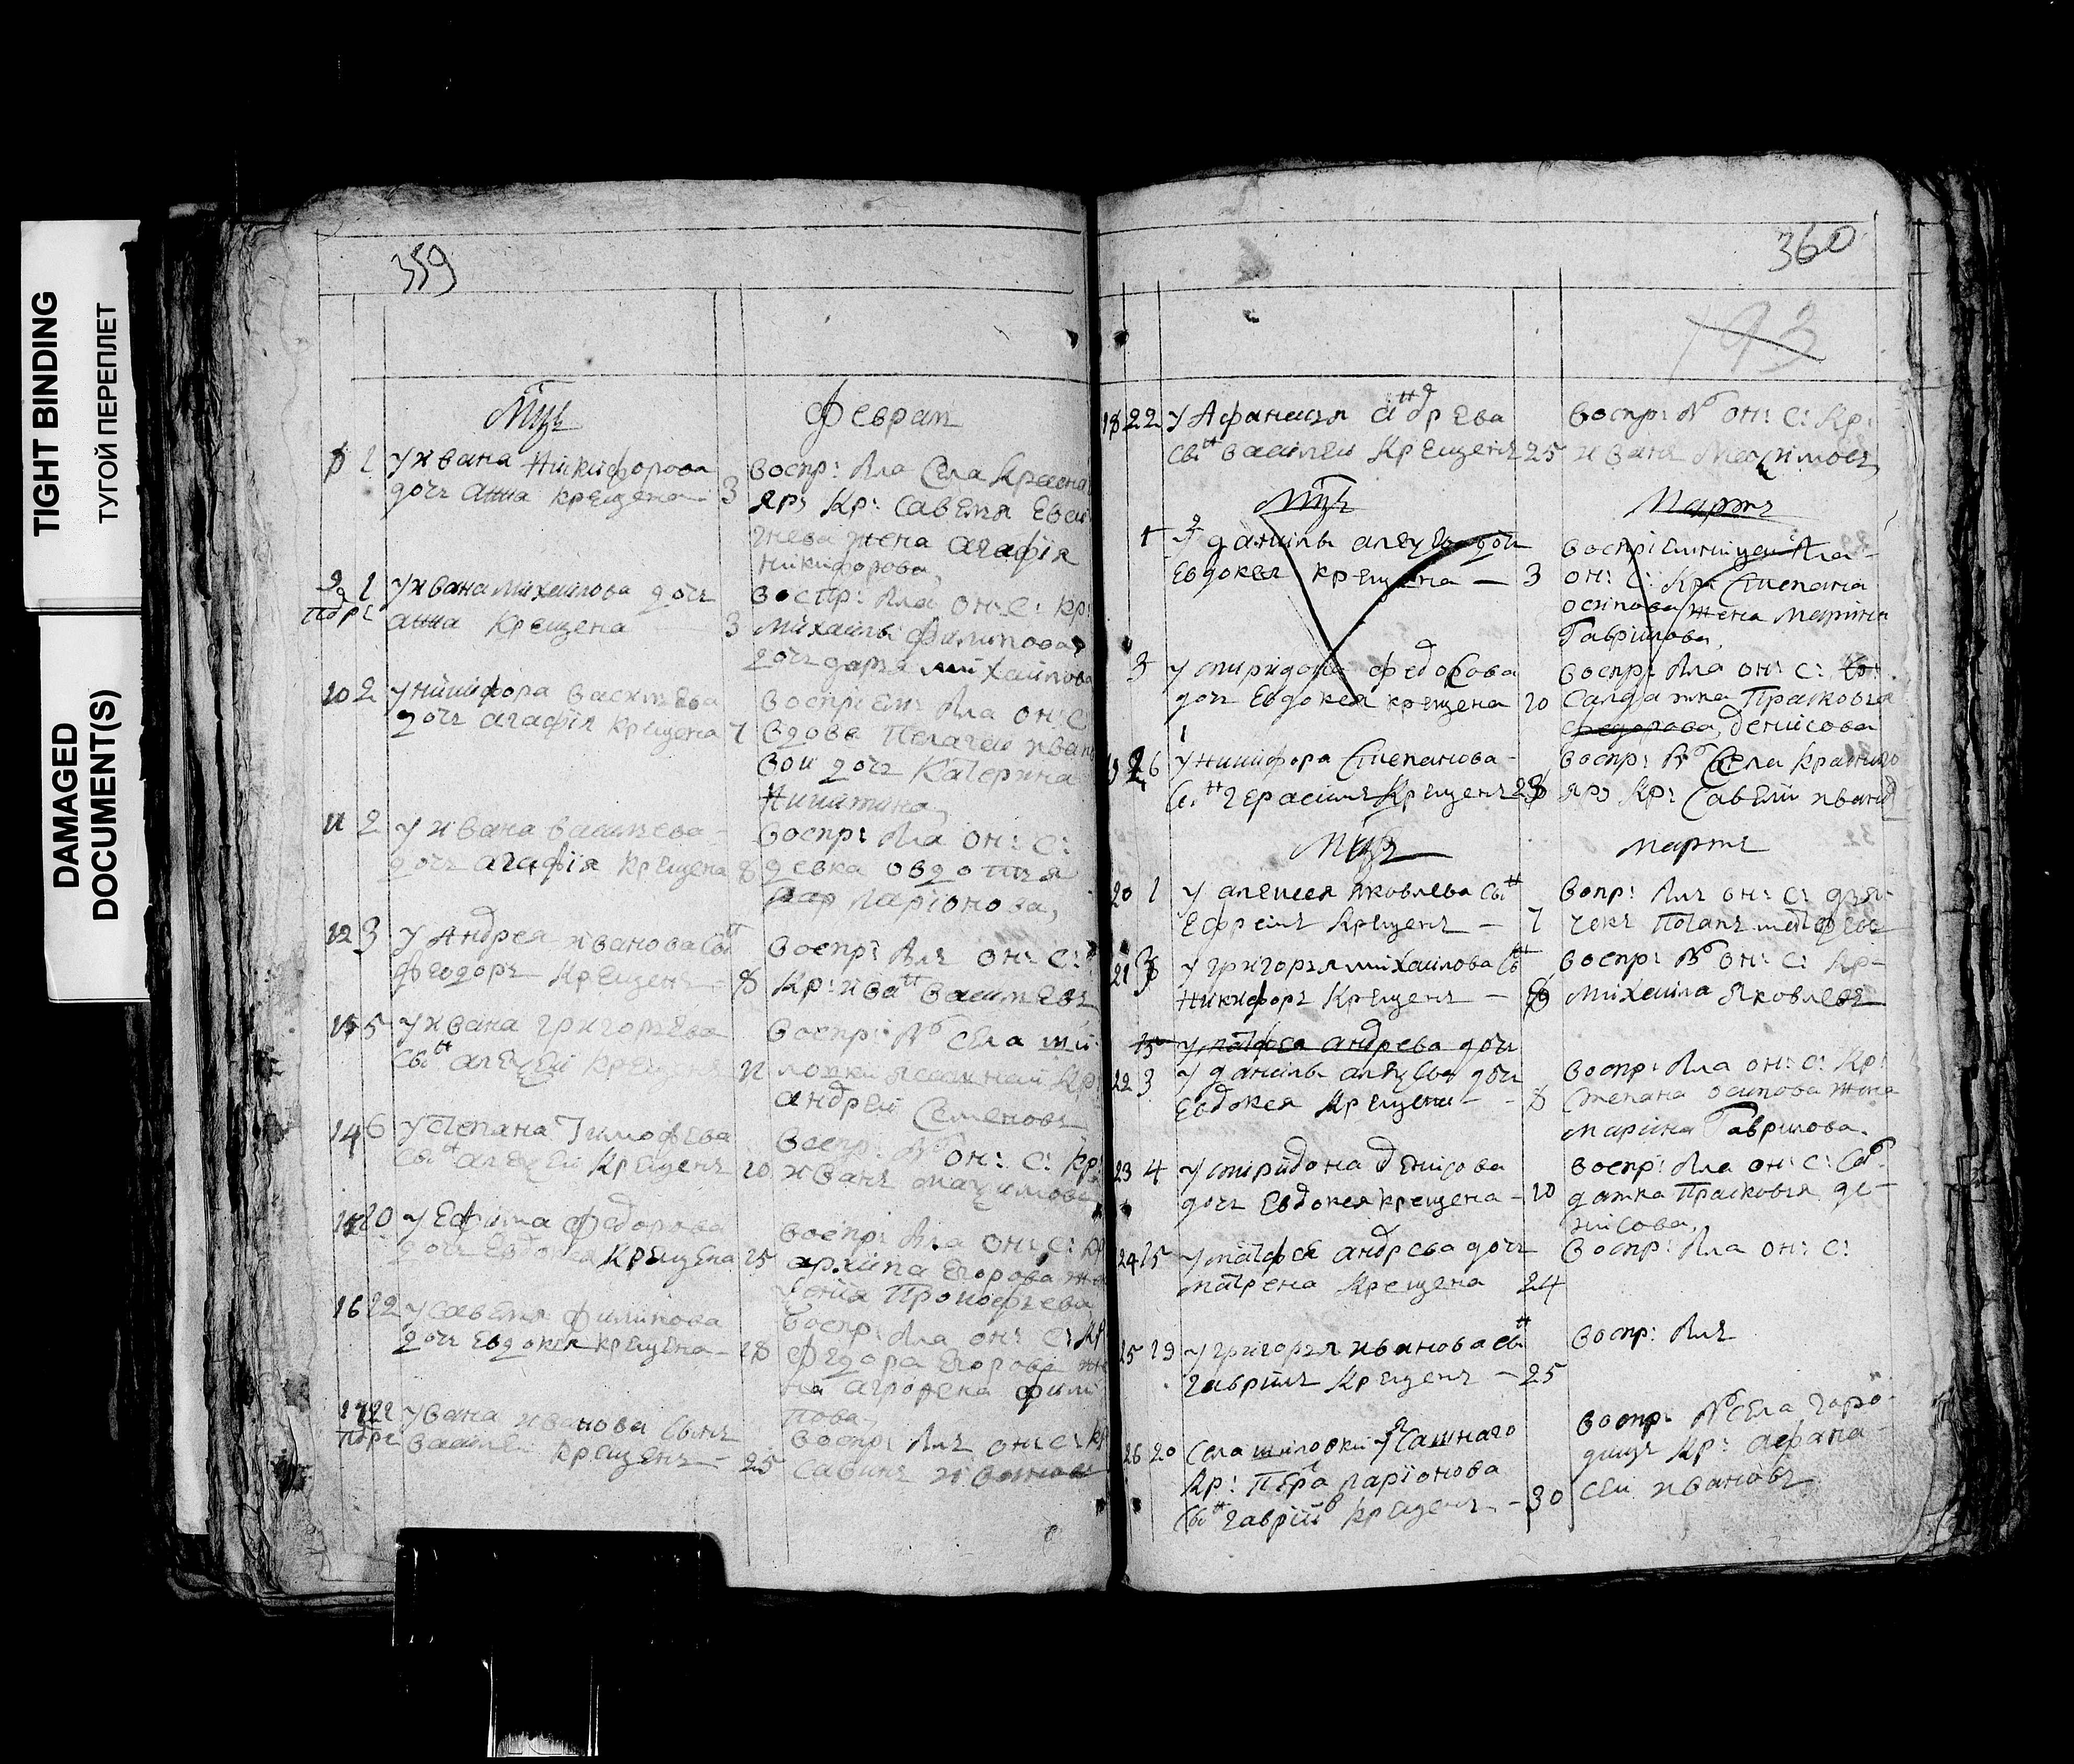 TIGHT BINDING
ТУГОЙ ПЕРЕПЛЕТ
DAMAGED
DOCUMENT(S)
359
Мцъ
феврал
8 1 у ивана Никифорова
дочь анна крещена 3
воспр: яла Села Красна
яру Кр: Савелья
жена агафiя
никифорова,
9 1 у ивана михаилова дочь
анна крещена 3
воспр: яла он: С: кр:
михаилы филипова
дочь дарья михаилова
10 2 у никифора
дочь агафiя крещена 7
воспрiем яла он: С
вдове Пелагеи ивано
вой дочь Катерина
Никитина,
11 2 у ивана василева
дочь агафiя крещена 8
воспр: яла он: С:
девка овдотья
ларiонова,
12 3 у Андрея иванова сын
феодоръ крещенъ 8
воспр: ялъ он: С:
Кр: иван василевъ
5 у ивана григорьева
сын алеѯеи крещенъ 11
воспр: Села ши
ловки ясашнаи Кр:
андреи Семеновъ
14 6 у степана Тимофеева
сын алеѯеи крещенъ 10
воспр: он: С: кр:
иванъ маѯимовъ
20 у Ефима федорова
дочь Евдокея крещена 25
воспр: яла он: С: кр
архипа Егорова же
Прокофьева
16 22 у Савелья филипова
дочь Евдокея крещена 28
воспр: яла он: С: Кр
федора Егорова же
на филі
пова,
17 22 у ивана иванова сынъ
василеи крещенъ 25
воспр: ялъ он: С: кр
иванов
360
193
18 22 у Афанасья андрева
сын василеи крещенъ 25
воспр: он: С: Кр:
иванъ Маѯимовъ,
Мцъ
Мартъ
1 2 у данилы алеѯева дочь
Евдокея крещена — 3
воспрiемницеи яла
он: С: Кр: Степана
осипова жена Марина
Гаврилова,
3 у спиридона федорова
дочь Евдокея крещена 10
воспр: яла он: С: Кр:
Салдатка Прасковья
федорова, денисова
19 26 у никифора Степанова
сын герасимъ крещенъ 28
воспр: Села Краснаго
яру Кр: Савелеи иванов
Мцъ
мартъ
20 1 у алексея яковлева сын
Ефремъ крещенъ — 7
вопр: ялъ он: С: дья-
чекъ Потапъ матфеевъ
21 3 у григорья михаилова сын
Никифоръ крещенъ — 8
воспр: он: С: Кр-
михаила яковлевъ
15 у матфея андрева дочь
22 3 у данилы алеѯева дочь
Евдокея крещена - 8
воспр: яла он: С: Кр:
Степана осипова жена
марина Гаврилова.
23 4 у спиридона денисова
дочь Евдокея крещена - 10
воспр: яла он: С: Сал
датка Прасковья де-
нисова,
24 15 у матфея андрева дочь
матрена крещена 24
воспр: яла он: С:
25 19 у григорья иванова сын
гаврилъ крещенъ — 25
воспр: ялъ
26 20 Села шиловки ясашнаго
Кр: Петра ларiонова
сын гаврил крещенъ - 30
воспр: Села горо-
дищъ Кр: афана-
сеи ивановъ